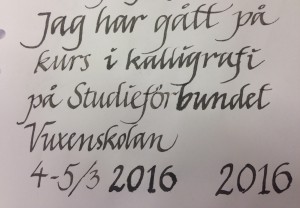 Jag har gått på
kurs i kalligrafi
på Studieförbundet
Vuxenskolan
4-5/3 2016 2016